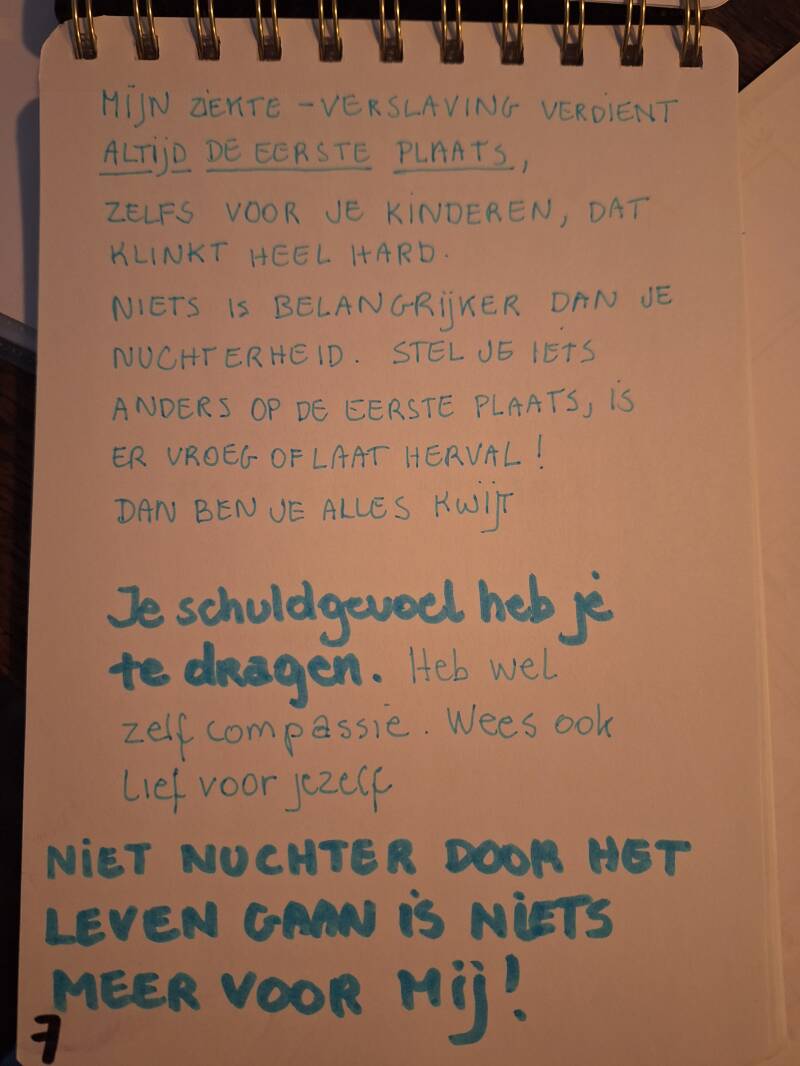 MIJN ZIEKTE - VERSLAVING VERDIENT
ALTIJD DE EERSTE PLAATS,
ZELFS VOOR JE KINDEREN, DAT
KLINKT HEEL HARD.
NIETS IS BELANGRIJKER DAN JE
NUCHTERHEID. STEL JE IETS
ANDERS OP DE EERSTE PLAATS, IS
ER VROEG OF LAAT HERVAL!
DAN BEN JE ALLES KWIJT
Je schuldgevoel heb je
te dragen. Heb wel
zelf compassie. Wees ook
lief voor jezelf
NIET NUCHTER DOOR HET
LEVEN GAAN IS NIETS
MEER VOOR MIJ!
7